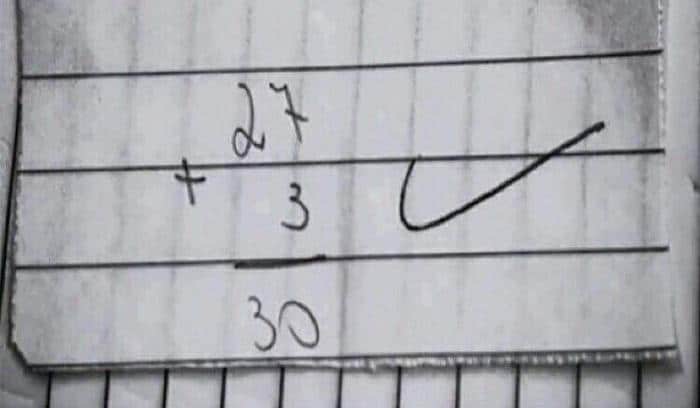 27
+ 3
30